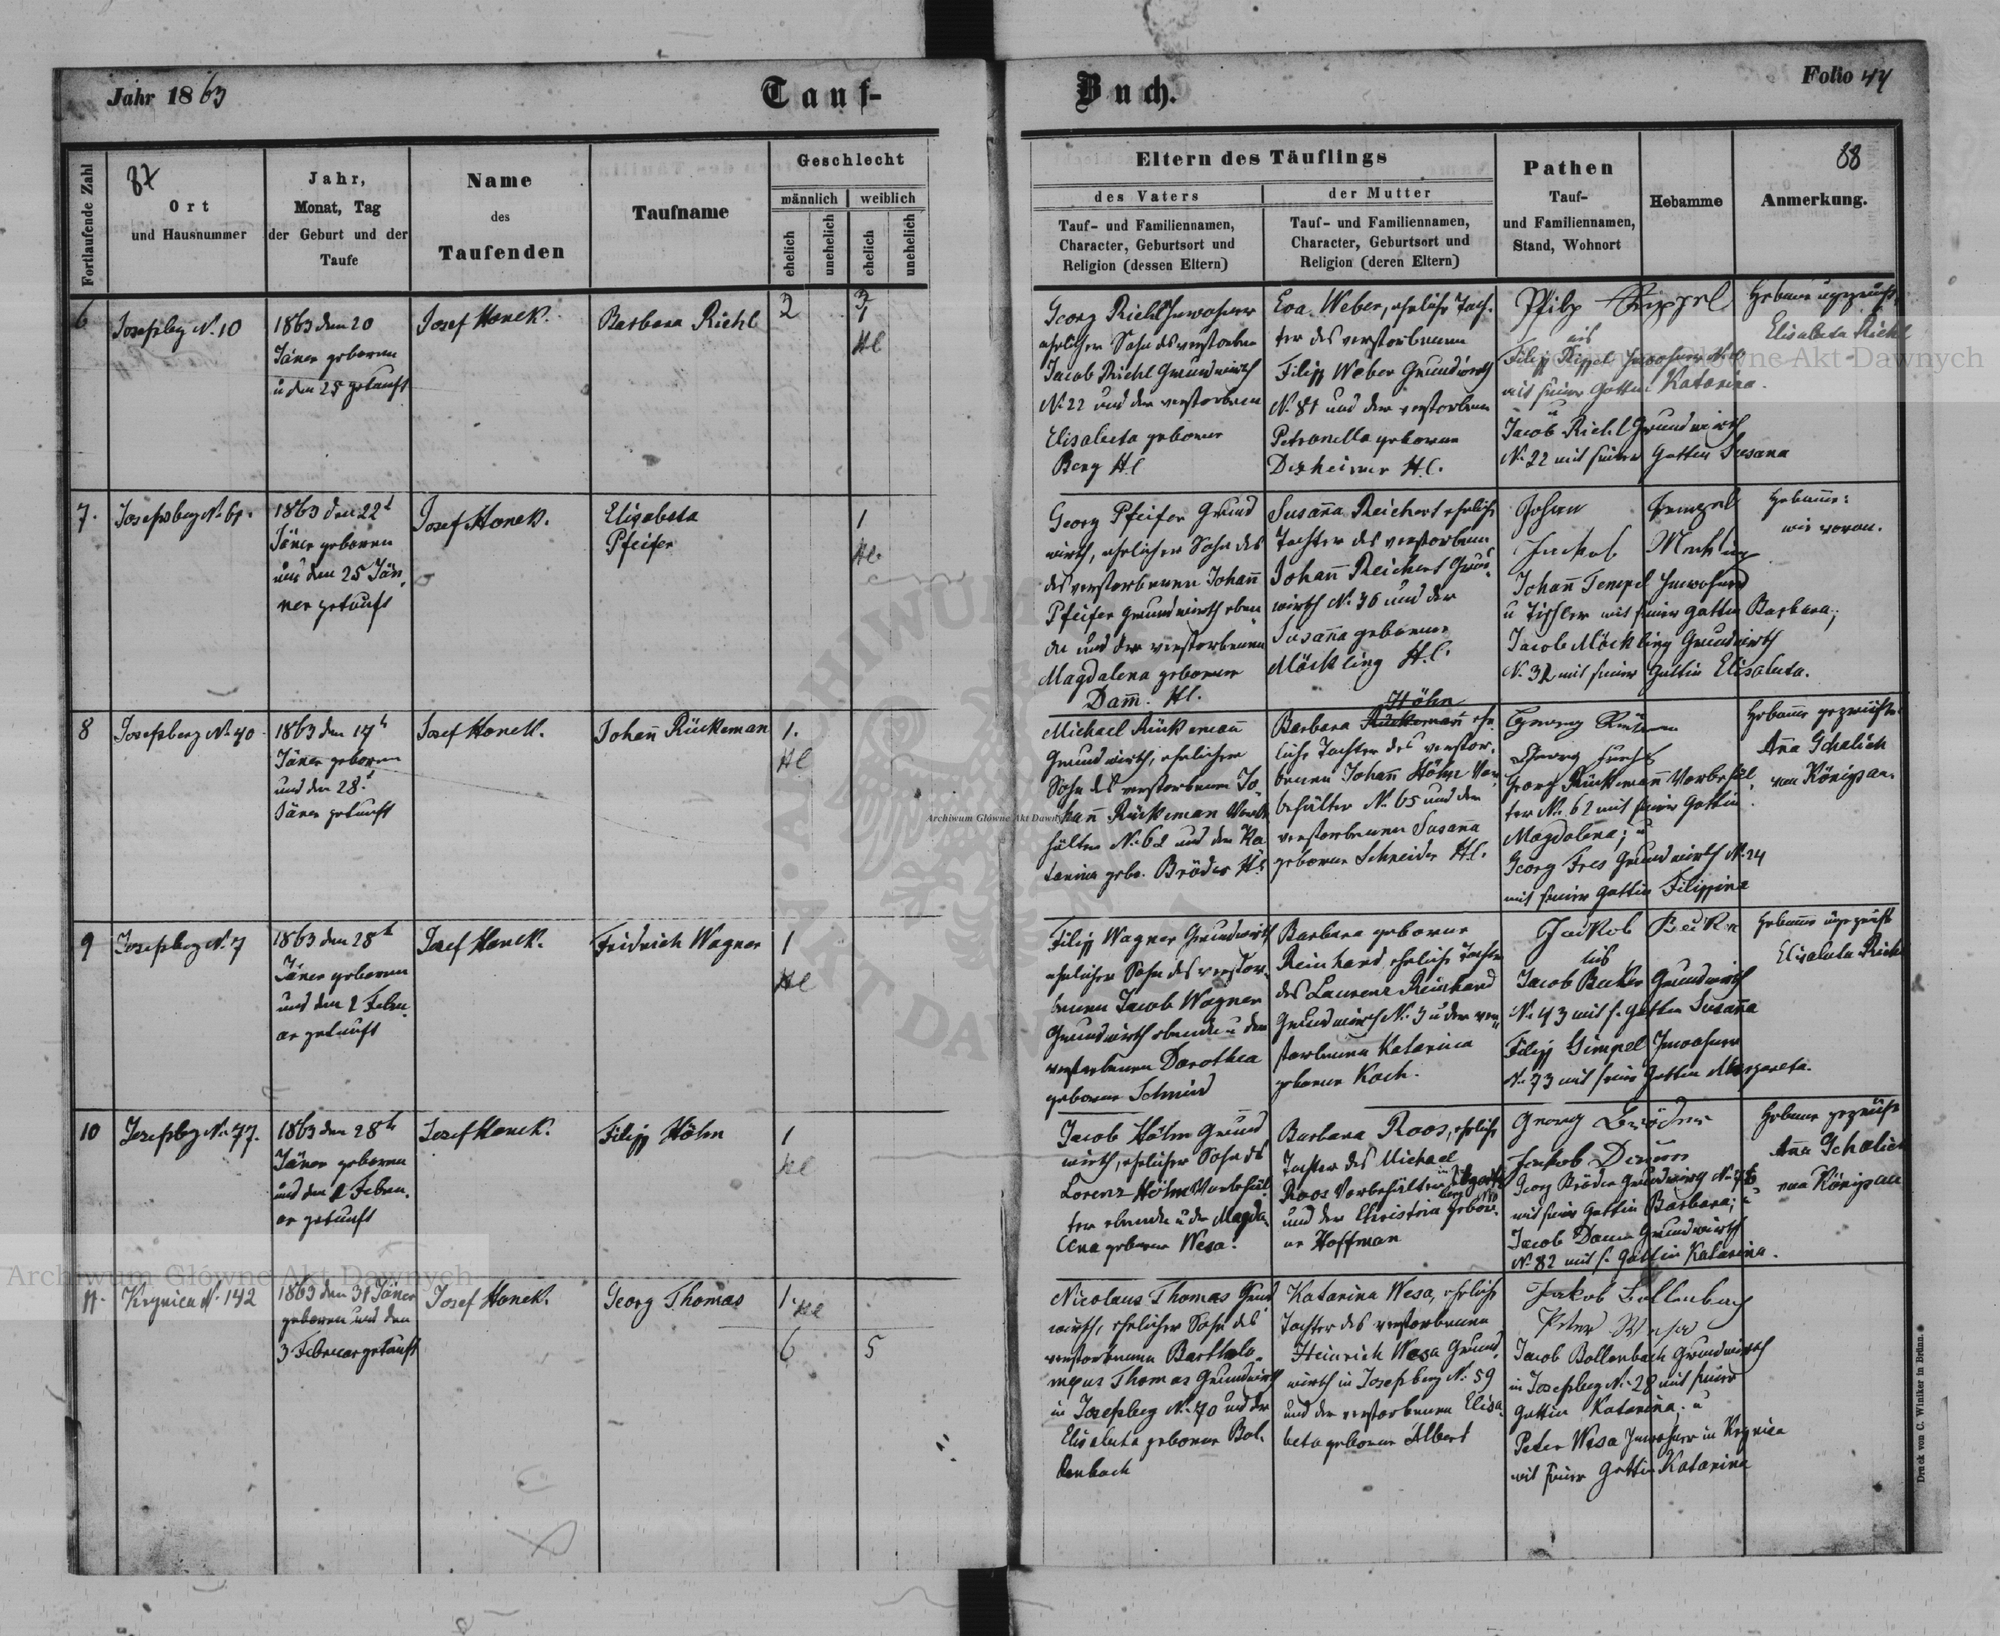 Jahr 1863
Tauf-
Buch.
Folio 44
Fortlaufende Zahl
87
Ort
und Hausnummer
Jahr,
Monat, Tag
der Geburt und der
Taufe
Name
des
Taufenden
Taufname
Geschlecht
männlich
weiblich
ehelich
unehelich
ehelich
unehelich
Eltern des Täuflings
des Vaters
der Mutter
Tauf- und Familiennamen,
Character, Geburtsort und
Religion (dessen Eltern)
Tauf- und Familiennamen,
Character, Geburtsort und
Religion (deren Eltern)
Pathen
Tauf-
und Familiennamen,
Stand, Wohnort
Hebamme
88
Anmerkung.
6
Josefsberg N. 10
1863 den 20
Jäner geboren
u den 25 getauft
Josef Hanek.
Barbara Riehl
2
Hl
Georg Riehl Inwohner
ehelicher Sohn des verstorben
Jacob Riehl Grundwirth
N. 22 und der verstorbenen
Elisabeta geborene
Berg Hl
Eva Weber, eheliche Toch-
ter des verstorbenen
Filipp Weber Grundwirth
N. 81 und der verstorbenen
Petronella geborene
Dezheimer H.C.
Filipp Rippel Inwohner
mit seiner Gattin Katarina.
u
Jacob Riehl Grundwirth
N. 22 mit seiner Gattin Susana
Elisabeta Riehl
7.
Josefsberg N. 61.
1863 den 22t
Jäner geboren
und den 25 Jän
ner getauft
Josef Hanek.
Elisabeta
Pfeifer
1
Hl.
Georg Pfeifer Grund
wirth, ehelicher Sohn des
des verstorbenen Johann
Pfeifer Grundwirth eben
da und der verstorbenen
Magdalena geborene
Damm. Hl.
Susanna Reichert eheliche
Tochter des verstorbenen
Johann Reichert Grund
wirth N. 36 und der
Susanna geborene
Möckling H.C.
Johan Tempel
Jackob
Johann Tempel Inwohner
u Tischler mit seiner Gattin Barbara;
Jacob Möckling Grundwirth
N. 32 mit seiner Gattin Elisabeta.
Hebamme:
wie voran.
8
Josefsberg N. 40
1863 den 14t
Jäner geboren
und den 28t
Jäner getauft
Josef Hanek.
Johann Rückeman
1.
Hl
Michael Rückemann
Grundwirth, ehelicher
Sohn des verstorbenen Jo
hann Rückeman Vorbe
hälter N. 62 und der Ka
tarina geb. Bröder Hl
Höhn
Barbara Rückemann ehe
liche Tochter des verstor-
benen Johann Höhn Vor
behälter N. 65 und der
verstorbenen Susanna
geborene Schneider H.C.
Georg Rückemann Vorbehäl
ter N. 62 mit seiner Gattin
Magdalena; u
Georg Fres Grundwirth N. 24
mit seiner Gattin Filippina
Hebamme geprüfte
Anna Schalich
von Königsau.
9
Josefsberg N. 7
1863 den 28t
Jäner geboren
und den 1 Febru
ar getauft
Josef Hanek.
Fridrich Wagner
1
Hl
Filipp Wagner Grundwirth
ehelicher Sohn des verstor-
benen Jacob Wagner
Grundwirth ebenda u der
verstorbenen Dorothea
geborene Schmid
Barbara geborene
Reinhard eheliche Tochter
des Laurenz Reinhard
Grundwirth N. 3 u der ver
storbenen Katarina
geborene Koch.
Jackob
Jacob Becker Grundwirth
N. 43 mit s. Gattin Susanna
Filipp Gimpel Inwohner
N. 73 mit seiner Gattin Margareta.
Hebamme ungeprüft
Elisabeta Riehl
10
Josefsberg N. 77.
1863 den 28t
Jäner geboren
und den 1 Febru.
ar getauft
Josef Hanek.
Filipp Höhn
1
Hl
Jacob Höhn Grund
wirth, ehelicher Sohn des
Lorenz Höhn Vorbehäl
ter ebenda u der Magda
lena geborene Wesa.
Barbara Roos, eheliche
Tochter des Michael
Roos Vorbehälter
und der Christina gebore
ne Hoffman
Georg Bröder
Jakob Damm
Georg Bröder Grundwirth
mit seiner Gattin Barbara; u
Jacob Damm Grundwirth
N. 82 mit s. Gattin Katarina.
Hebamme geprüfte
Anna Schalich
von Königsau
11.
Krynica N. 142
1863 den 31 Jäner
geboren und den
3 Februar getauft
Josef Hanek.
Georg Thomas
1.
Hl
6
5
Nicolaus Thomas Grund
wirth, ehelicher Sohn des
verstorbenen Bartholo-
meus Thomas Grundwirth
in Josefsberg N. 70 und der
Elisabeta geborene Bol-
lenbach
Katarina Wesa, eheliche
Tochter des verstorbenen
Heinrich Wesa Grund
wirth in Josefsberg N. 59
und der verstorbenen Elisa
beta geborene Albert
Jakob Bollenbach
Peter Wesa
Jacob Bollenbach Grundwirth
in Josefsberg N. 28 mit seiner
Gattin Katarina; u
Peter Wesa Inwohner in Krynica
mit seiner Gattin Katarina
Druck von C. Winiker in Brünn.
Archiwum Główne Akt Dawnych
Archiwum Główne Akt Dawnych
Archiwum Główne Akt Dawnych